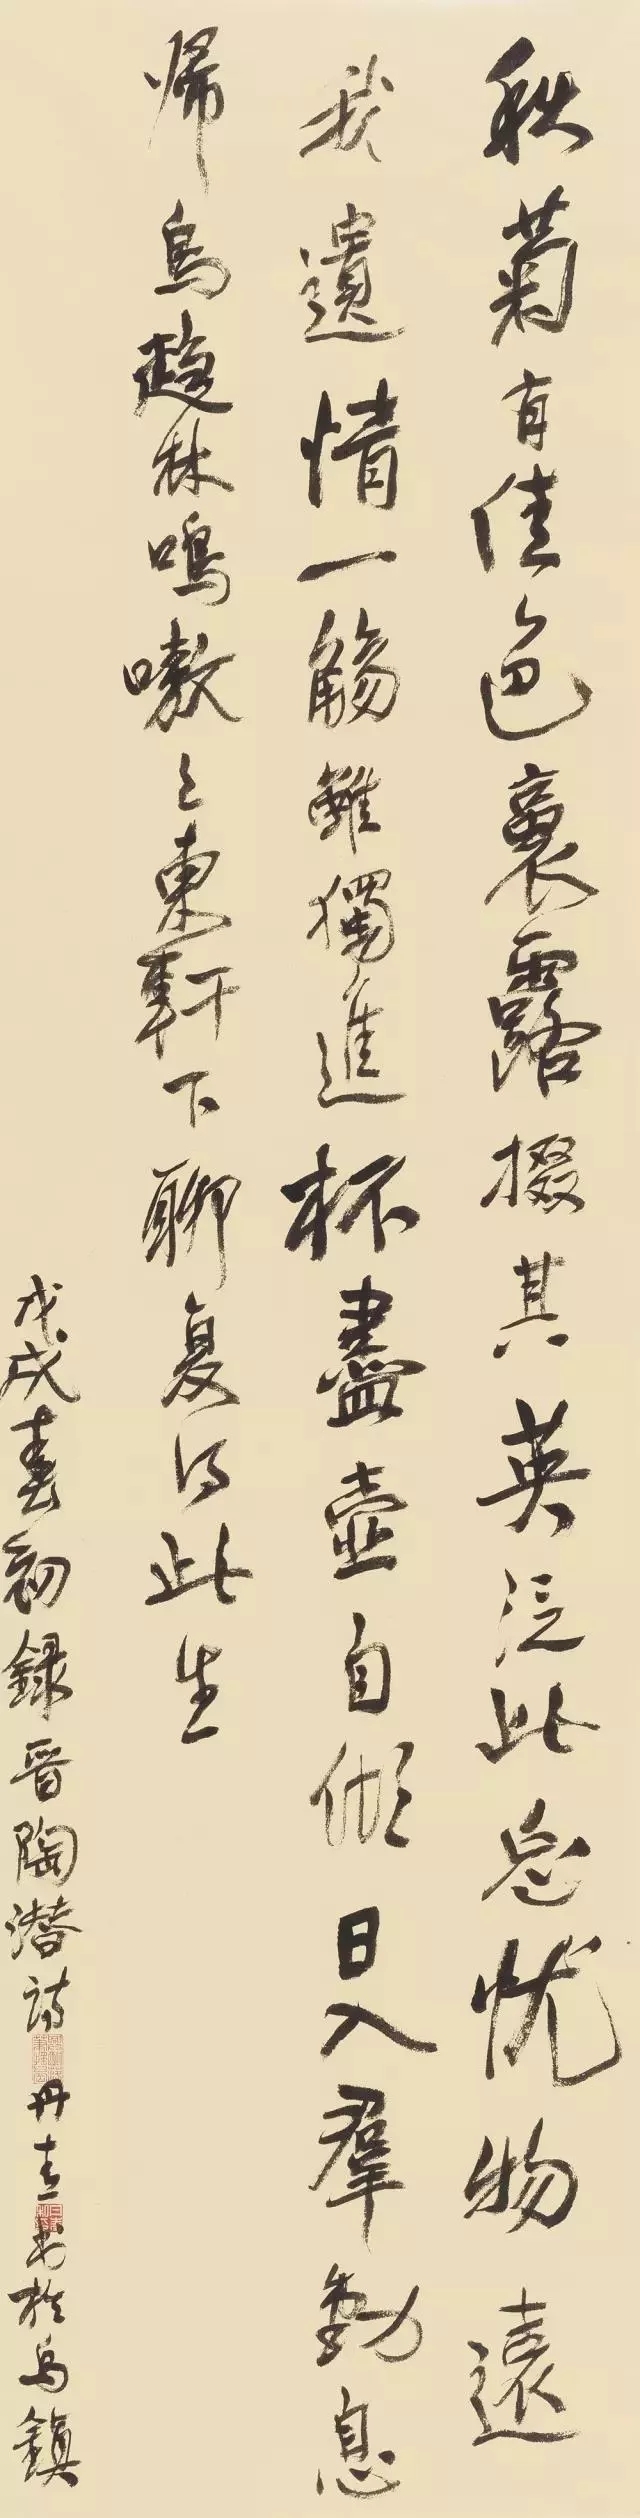 秋菊有佳色裛露掇其英泛此忘忧物遠
我遺情一觴雖獨進杯盡壺自傾日入羣動息
帰鳥趨林鳴嗷々東軒下聊复得此生
戊戌春初録晋陶潜詩丹青书於乌鎮